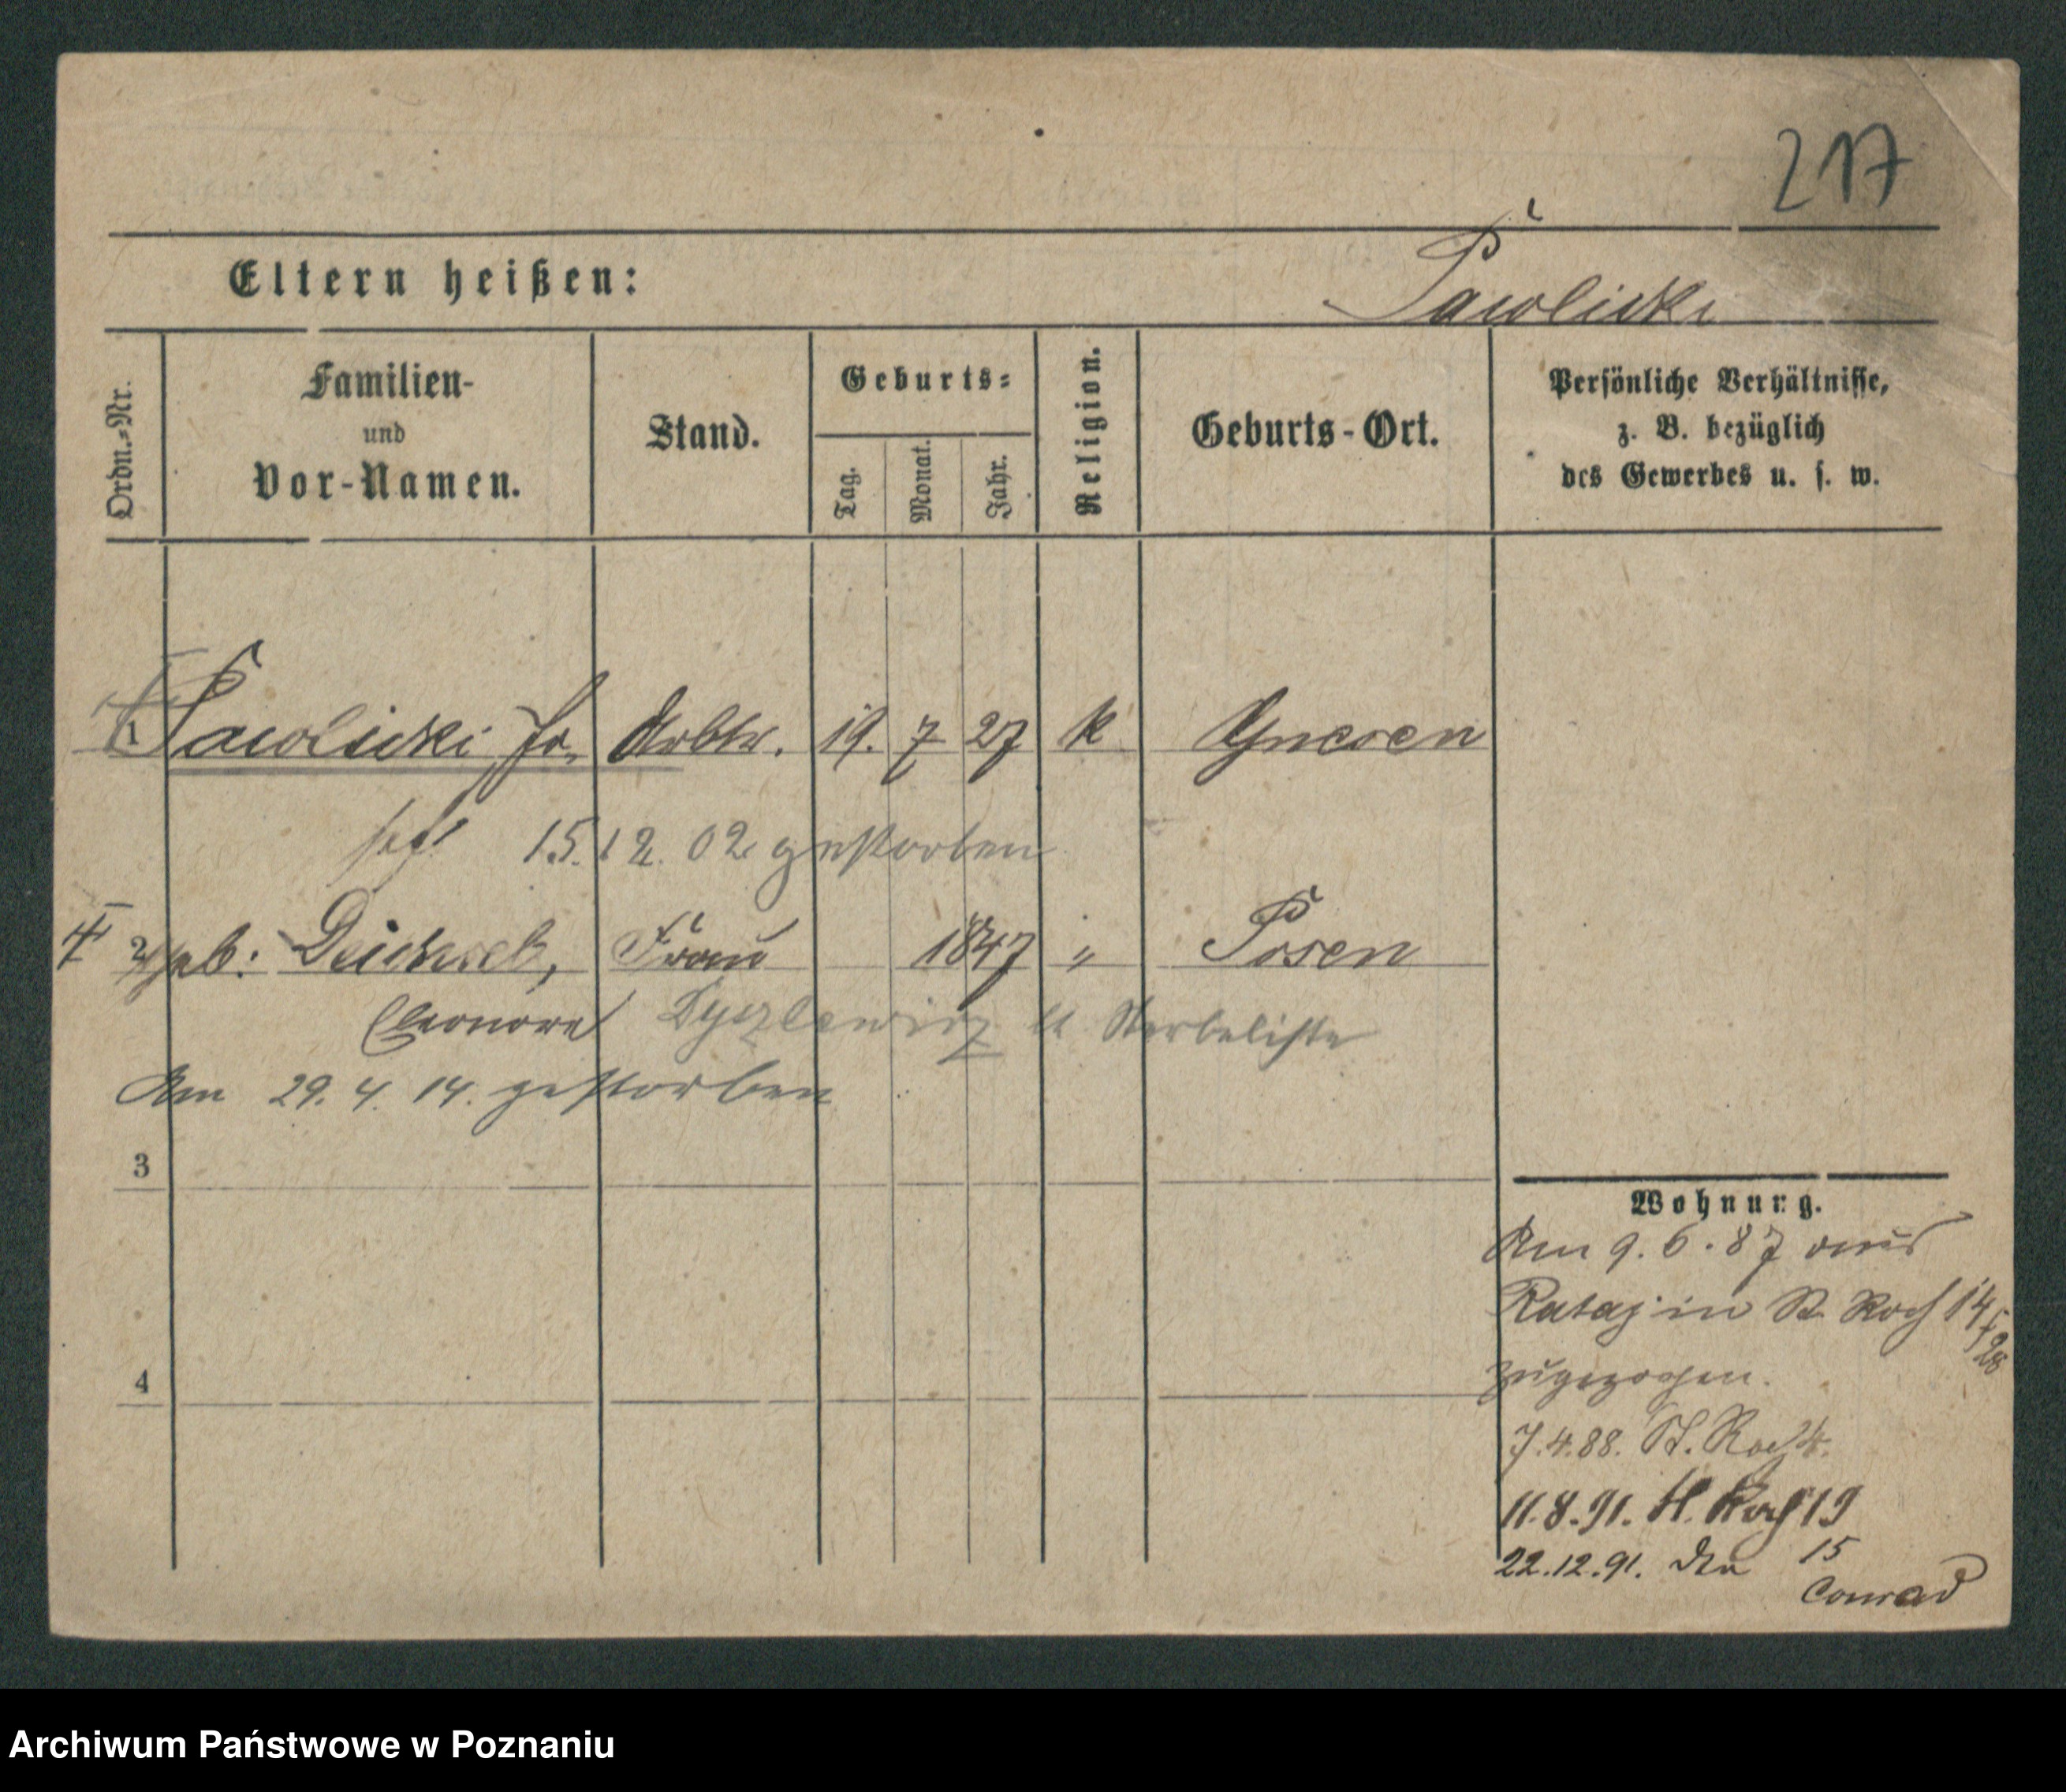 217
Eltern heißen: Pawlicki
Ordn.-Nr. Familien- und Vor-Namen. Stand. Geburts- Tag. Monat. Jahr. Religion. Geburts-Ort. Persönliche Verhältnisse, z. B. bezüglich des Gewerbes u. s. w.
1 Pawlicki Jo- Arbtr. 19. 7 27 k Gnesen
sef 15.12.02 gestorben
2 geb: Frau 1847 " Posen
Eleonore Sterbeliste
Am 29. 4. 14. gestorben
3
4
Wohnung.
Am 9. 6. 87 aus
Rataj in St. Roch 14
zugezogen.
7.4.88. St. Roch 4.
11.8.91. St. Roch 19
22.12.91. 15
Conrad
Archiwum Państwowe w Poznaniu